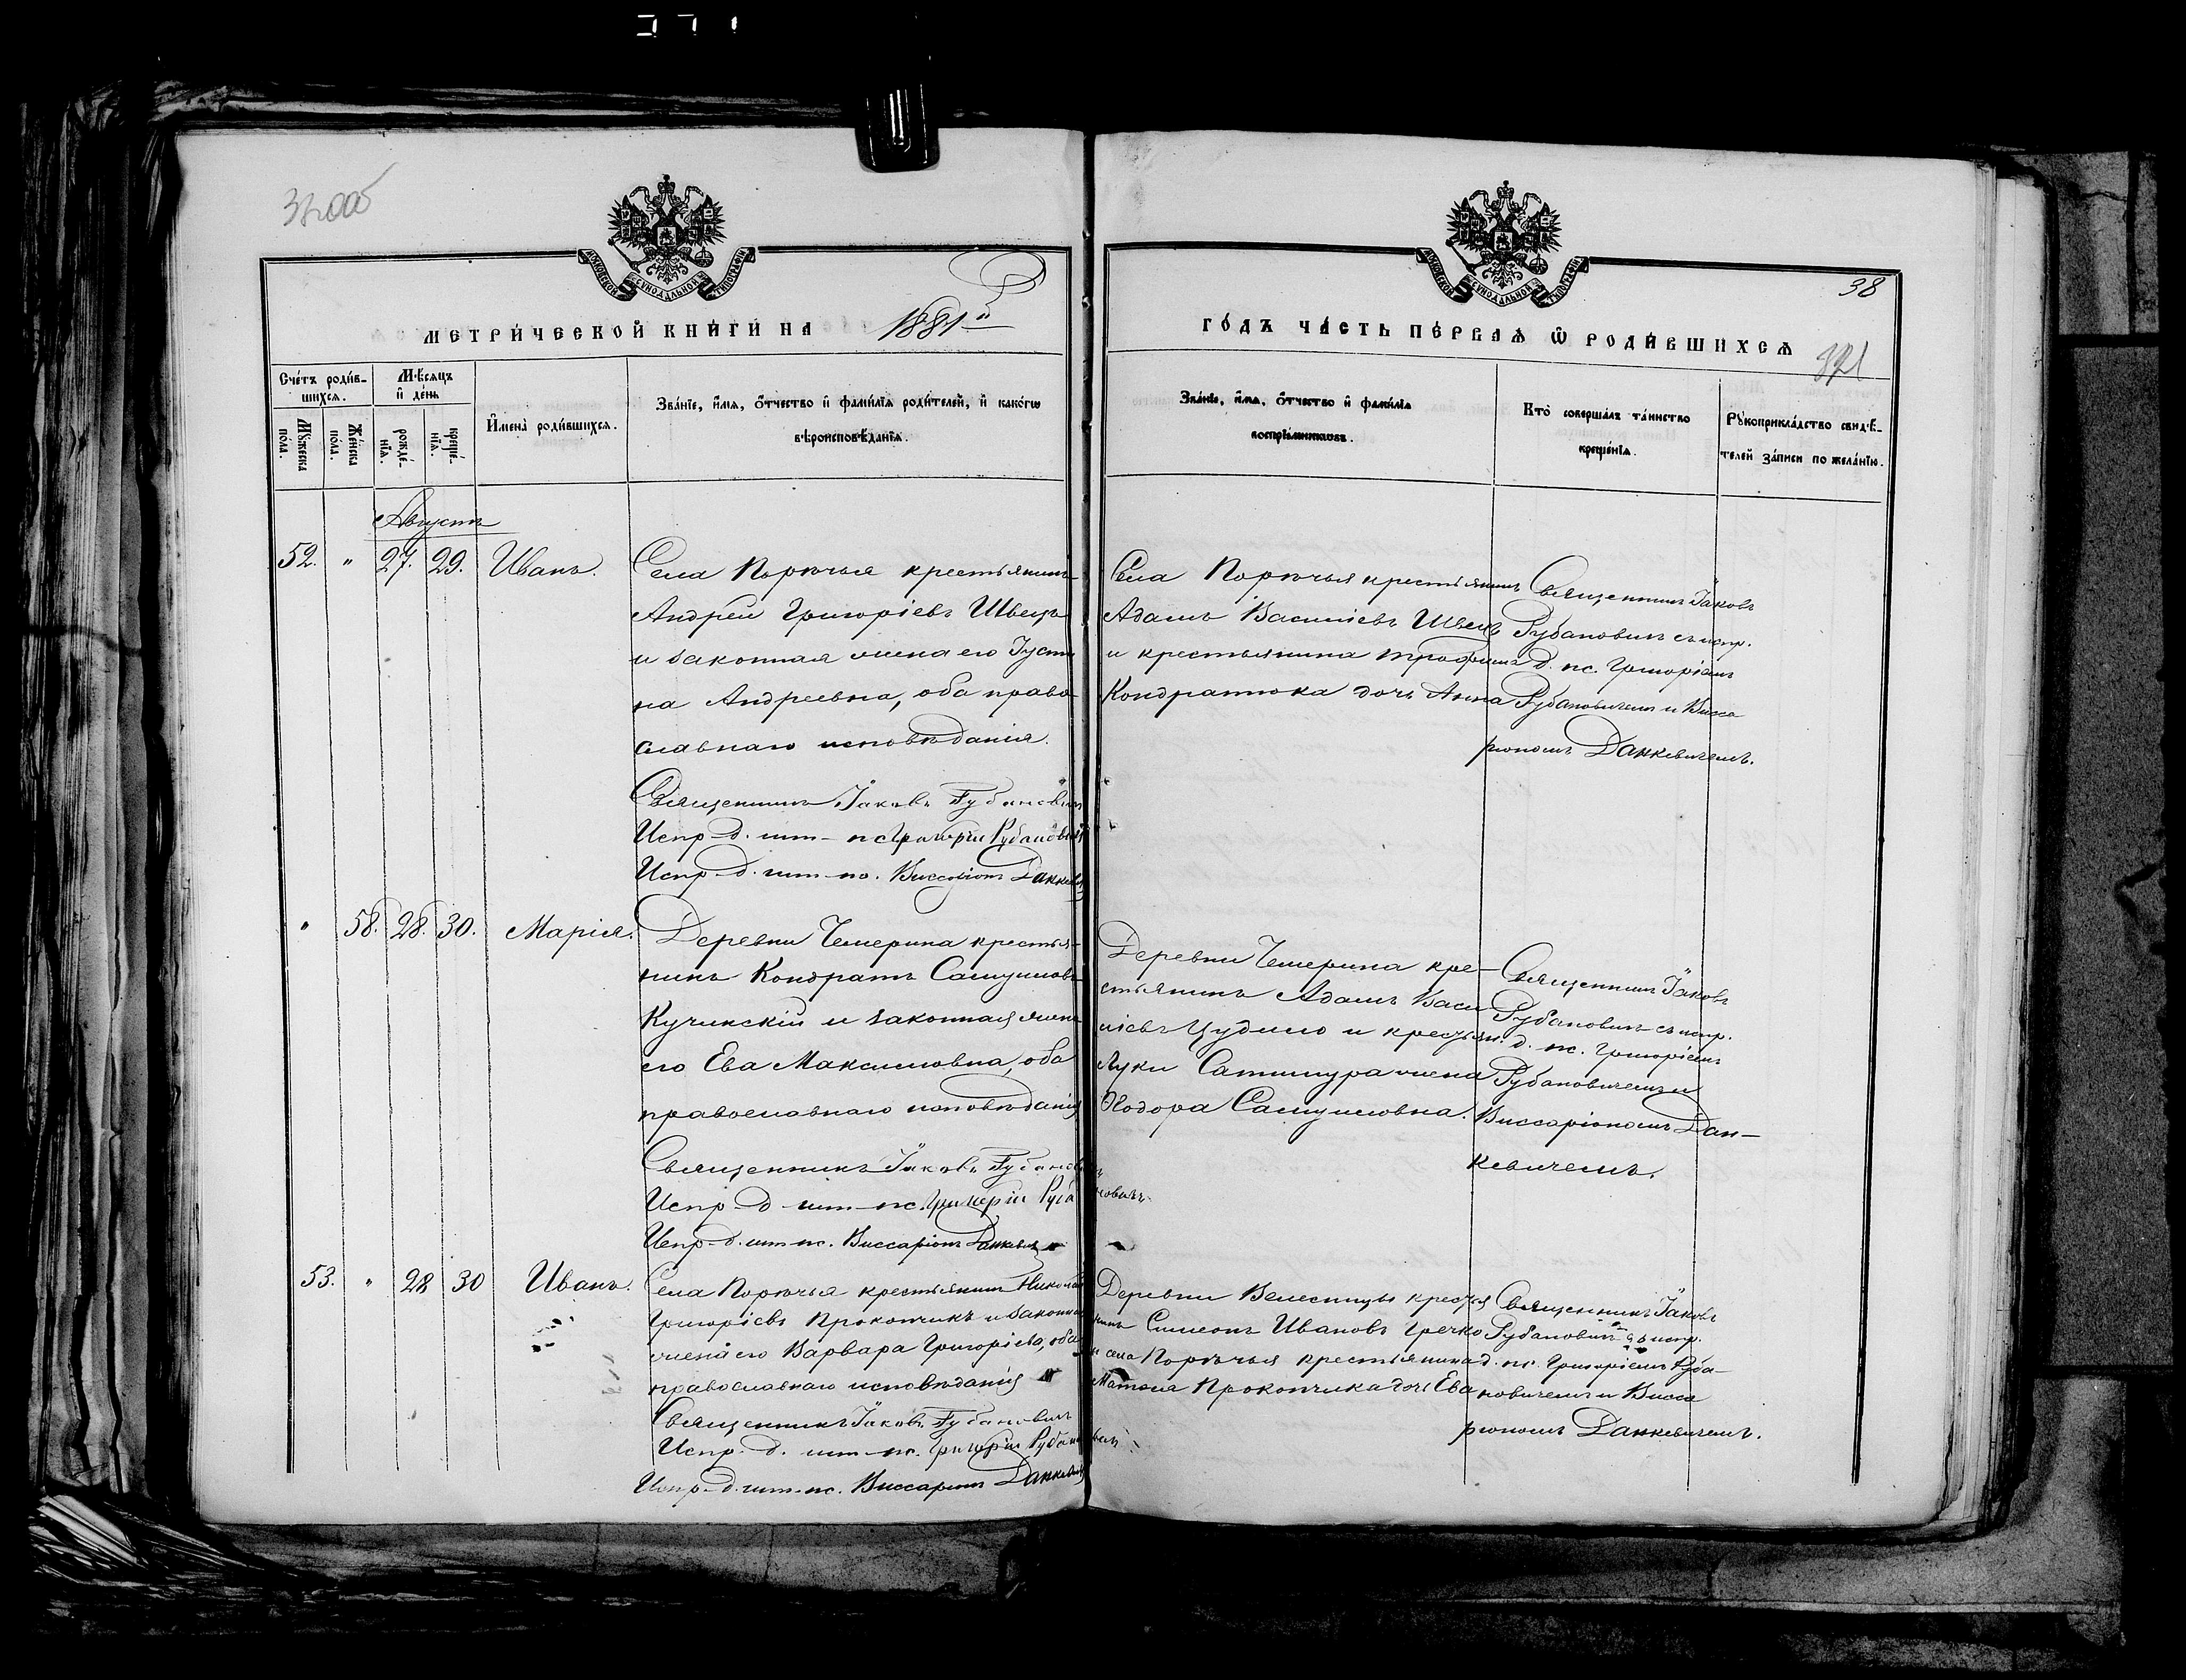 38
МЕТРИ́ЧЕСКОЙ КНИ́ГИ НА 1881й
ГО́ДЪ ЧА́СТЬ ПЕ́РВАѦ Ѡ҆ РОДИ́ВШИХСѦ
Сче́тъ роди́в-
шихсѧ.
Мꙋ́жеска по́ла.
Же́нска по́ла.
Мѣ́сѧцъ
и҆ де́нь
рожде́-
нїѧ.
креще́-
нїѧ.
И҆мена̀ роди́вшихсѧ.
Зва́нїе, и҆́мѧ, ѻ҆́тчество и҆ фами́лїѧ роди́телей, и҆ како́гѡ
вѣроисповѣ́данїѧ.
Зва́нїе, и҆́мѧ, ѻ҆́тчество и҆ фами́лїѧ
воспрїе́мниковъ.
Кто̀ соверша́лъ та́инство
креще́нїѧ.
Рꙋкоприкла́дство свидѣ́-
телей за́писи по жела́нїю.
Августъ
52. " 27. 29. Иванъ.
Села Порѣчья крестьянинъ
Андрей Григоріевъ Швецъ
и законная жена его Усти
на Андреевна, оба право
славнаго исповѣданія.
Священникъ Іаковъ Рубановичъ
Испр. д. шт. пс. Григорій Рубановичъ
Испр. д. шт. пс. Виссаріонъ Данкевичъ
Села Порѣчья крестьянинъ
Адамъ Василіевъ Швецъ
и крестьянина Трофима
Кондратюка дочь Анна
Священникъ Іаковъ
Рубановичъ съ испр.
д. пс. Григоріемъ
Рубановичемъ и Висса
ріономъ Данкевичемъ.
" 58. 28. 30. Марія.
Деревни Чемерина крестья-
нинъ Кондратъ Самуиловъ
Кучинскій и законная жена
его Ева Максимовна, оба
православнаго исповѣданія
Священникъ Іаковъ Рубановичъ
Испр. д. шт. пс. Григорій Рубановичъ
Испр. д. шт. пс. Виссаріонъ Данкевичъ
Деревни Чемерина кре-
стьянинъ Адамъ Васи
ліевъ Цудило и крестьян.
Луки жена
Ѳеодора Самуиловна.
Священникъ Іаковъ
Рубановичъ съ испр.
д. пс. Григоріемъ
Рубановичемъ и
Виссаріономъ Дан-
кевичемъ.
53. " 28 30 Иванъ.
Села Порѣчья крестьянинъ Николай
Григоріевъ Прокопчикъ и законная
жена его Варвара Григоріева, оба
православнаго исповѣданія
Священникъ Іаковъ Рубановичъ
Испр. д. шт. пс. Григорій Рубановичъ
Испр. д. шт. пс. Виссаріонъ Данкевичъ
Деревни Велесницы крестья
нинъ Симеонъ Ивановъ Гречко
и села Порѣчья крестьянина
Матвея Прокопчика дочь Ева
Священникъ Іаковъ
Рубановичъ съ испр.
д. пс. Григоріемъ Руба-
новичемъ и Висса
ріономъ Данкевичемъ.